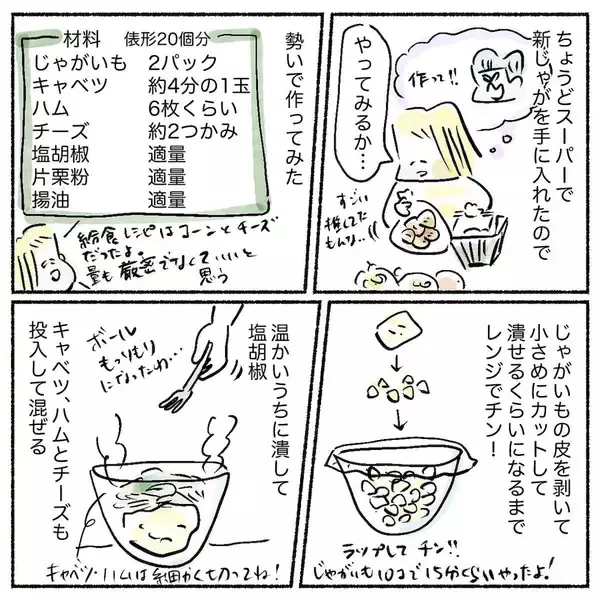 ちょうどスーパーで
新じゃがを手に入れたので
作って!!
やってみるか…
すごい
推してた
もんな…
勢いで作ってみた
材料 俵形20個分
じゃがいも 2パック
キャベツ 約4分の1玉
ハム 6枚くらい
チーズ 約2つかみ
塩胡椒 適量
片栗粉 適量
揚油 適量
給食レシピはコーンとチーズ
だったよ。
量も厳密でなくていいと
思う
じゃがいもの皮を剥いて
小さめにカットして
潰せるくらいになるまで
レンジでチン!
ラップして チン!!
じゃがいも10コで15分くらいやったよ!
温かいうちに潰して
塩胡椒
ボール
もりもり
になったわ…
キャベツ、ハムとチーズも
投入して混ぜる
キャベツ・ハムは細かく切ってね!